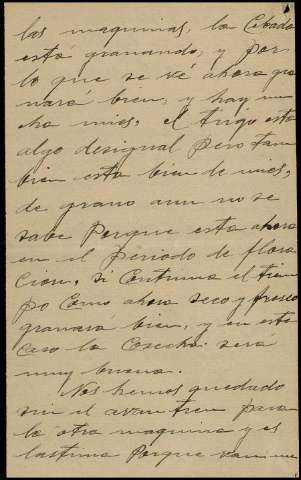 las maquinas, la Cebada
está granando, y por
lo que se vé ahora gra
nará bien, y hay mu
cha mies, el trigo está
algo desigual pero tam
bien esta bien de mies,
de grano aun no se
sabe porque esta ahora
en el periodo de flora
cion, si Continua el tiem
po Como ahora seco y fresco
granará bien, y en este
caso la Cosecha será
muy buena.
Nos hemos quedado
sin el avantren para
la otra maquina y es
lastima porque